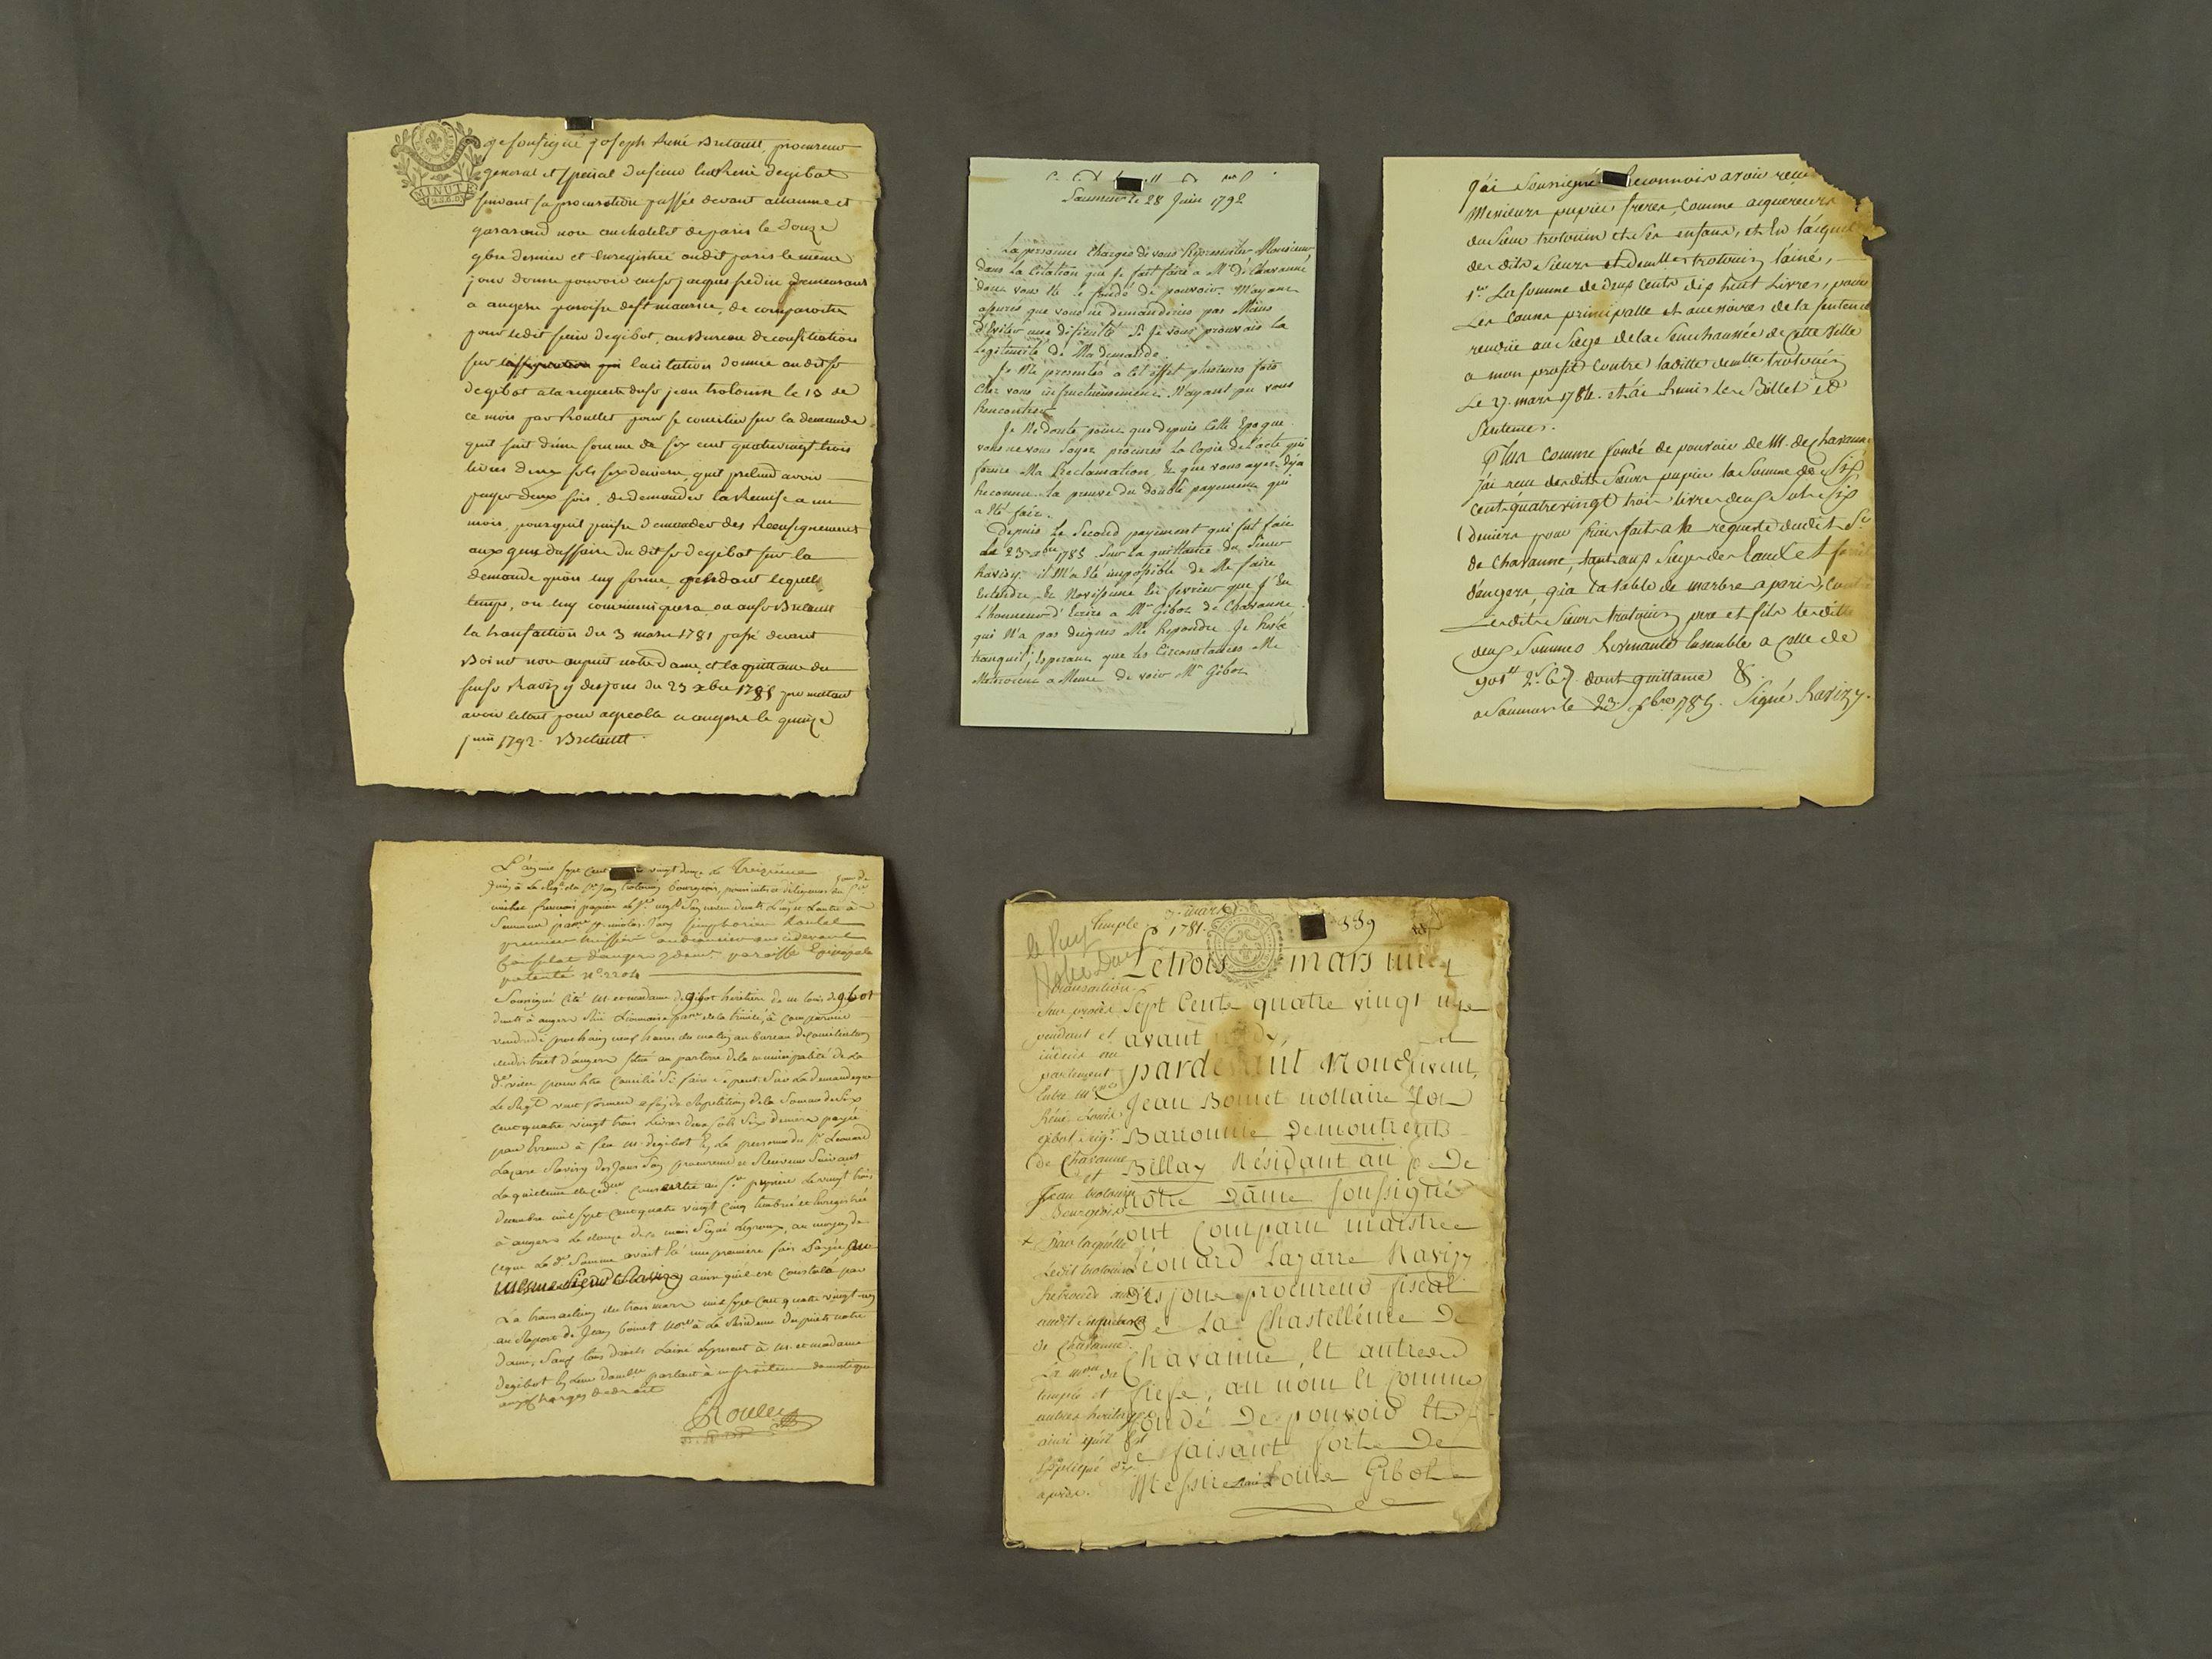 MINUTE
je soussigné joseph René Bretault, procureur
general et special du sieur luc René degibot
suivant sa procuration passée devant
gararand nore au chatelet de paris le douze
9bre dernier et enregistrée audit paris le même
jour donne pouvoir au sr jacques fredin demeurant
a angers paroisse de st maurice, de comparoitre
pour ledit sieur degibot, au Bureau de consiliation
sur la citation donnée audit sr
degibot a la requete du sr jean trotouin le 13 de
ce mois par Roullet pour se concilier sur la demande
quil fait d'une somme de six cent quatrevingt trois
livres deux sols six deniers quil pretend avoir
payer deux fois, de demander la Remise a un
mois, pour quil puisse demander des Renseignements
aux gens d'affaire du dit sr degibot sur la
demande qu'on luy forme, pendant lequel
temps, on luy communiquera ou au sr Bretault
la transaction du 3 mars 1781 passé devant
Boinet nore au puit notre dame, et la quittance du
sr Ravizy desjous du 23 xbre 1785 promettant
avoir le tout pour agreable a angers le quinze
juin 1792. Bretault
Saumur le 28 Juin 1792
La personne Chargée de vous Représenter Monsieur
dans La Citation que Je fait faire a Mr De Chavanne
dont vous été le fondé de pouvoir. M'ayant
assuré que vous ne demandiriés pas Mieux
d'Eviter une dificulté Si Je vous prouvais la
Legitimité de Ma demande.
Je Me presentés a Cet effet plusieurs fois
Chez vous infructueusement N'ayant pu vous
Rencontrer.
Je Ne doute point que depuis Cette Epoque
vous ne vous Soyez procurés La Copie de l'acte qui
forme Ma Reclamation, Et que vous ayez Déja
Reconnu la preuve du double payement qui
a été fait.
Depuis Le Second payement qui fut fait
Le 23 xbre 1785 Sur la quittance du Sieur
Ravizy. il M'a été impossible de Me faire
Entendre, Et Novissime En fevrier que J'Eu
L'honneur d'Ecrire a Mr Gibot de Chavanne
qui N'a pas daignés Me Repondre Je Resté
tranquil, Esperant que les Circonstances Me
Metroient a Meme de voir Mr Gibot
J'ai Soussigné Reconnois avoir reçu
Messieurs pupier freres, Comme acquereurs
du Sieur trotouin et Ses enfans, et En l'acquit
des dits Sieurs et Demlles trotouin l'ainé,
1° La Somme de Deux Cents dix huit Livres, pour
Les Causes principalle et accessoires de la Sentence
rendüe au Siege de la Senechaussée de Cette Ville
a mon profit Contre laditte demlle trotouin
Le 27. mars 1784. et ai Remis Les Billet et
Sentence.
Plus Comme fondé de pouvoir de M. de Chavanne
J'ai reçu desdits Sieurs pupier la Somme de Six
Cent quatrevingt trois livres deux Sols Six
deniers pour frais faits a la requeste dudit Sr
de Chavanne, tant aux Sieges des Eaux et forêts
d'angers, qu'a la table de marbre a paris, Contre
Lesdits Sieurs trotouin pere et fils lesdittes
deux Sommes Revenante Ensemble a Celle de
901# 2s 6d. dont quittance &.
a Saumur le 23. xbre 1785. Signé Ravizy.
L'an mil sept cent vingt douze Le Treizieme jour de
Juin à La Reqte du Sr Jean trotouin bourgeois, poursuites et diligences du Sr
premier huissier audiancier au cidevant
Consulat d'angers y demt paroisse Episcopale
patenté No 2204
Soussigné Cité Mr et madame Degibot héritiers de M. louis degibot
demts à angers Rüe Lionnaise parsse de la trinité, à Comparoir
vendredi prochain neuf heures du matin au bureau de Conciliation
du district d'angers situé au parterre de la municipalité de La
de ville pour être Concilié Si faire Se peut Sur La demande que
Le Reqt veut former afin de Répetition de la Somme de Six
Cent quatre vingt trois Livres deux sols Six deniers payée
par Erreur à feu M. degibot En La personne du Sr Léonard
Lazare Ravizy Desjous Son procureur et Receveur Suivant
decembre mil sept Cent quatre vingt Cinq timbrée et Enregistrée
à angers Le douze de ce mois Signé Legroux, au moyen de
Ceque La de Somme avait Eté une premiere fois Payée au
même Sieur Ravizy ainsi qu'il est Constaté par
La transaction du trois mars mil Sept Cent quatre vingt un
au Raport de Jean boinet Nore à La Residence du puits notre
dame, Sous tous droits
degibot En Leur domlle parlant à
aux Charges de droit
Roullet
le Puy
Notre Dame
Temple 3 mars 1781.
339
transaction
Sur procès
pendant et
indecis au
parlement
Entre Mre
René Louis
Gibot Seigr
de Chavanne
et
Jean trotouin
Bourgeois
Par laquelle
Ledit trotouin
audit Seigneur
de Chavanne
La mon du
temple et
autres heritages
ainsi qu'il Est
Expliqué cy
après.
Le trois mars mil
Sept Cents quatre vingt un
avant midy,
pardevant Nous
Jean Boinet nottaire de la
Baronnie De montreuil
Billay Résidant au puy De
notre Dame soussigné
ont Comparu maistre
Léonard Lazarre Ravizy
Desjous procureur fiscal
De La Chastellenie De
Chavanne, Et autres
fiefs, au nom Et Comme
fondé De pouvoir Et
Se faisant fort De
Messire René Louis Gibot